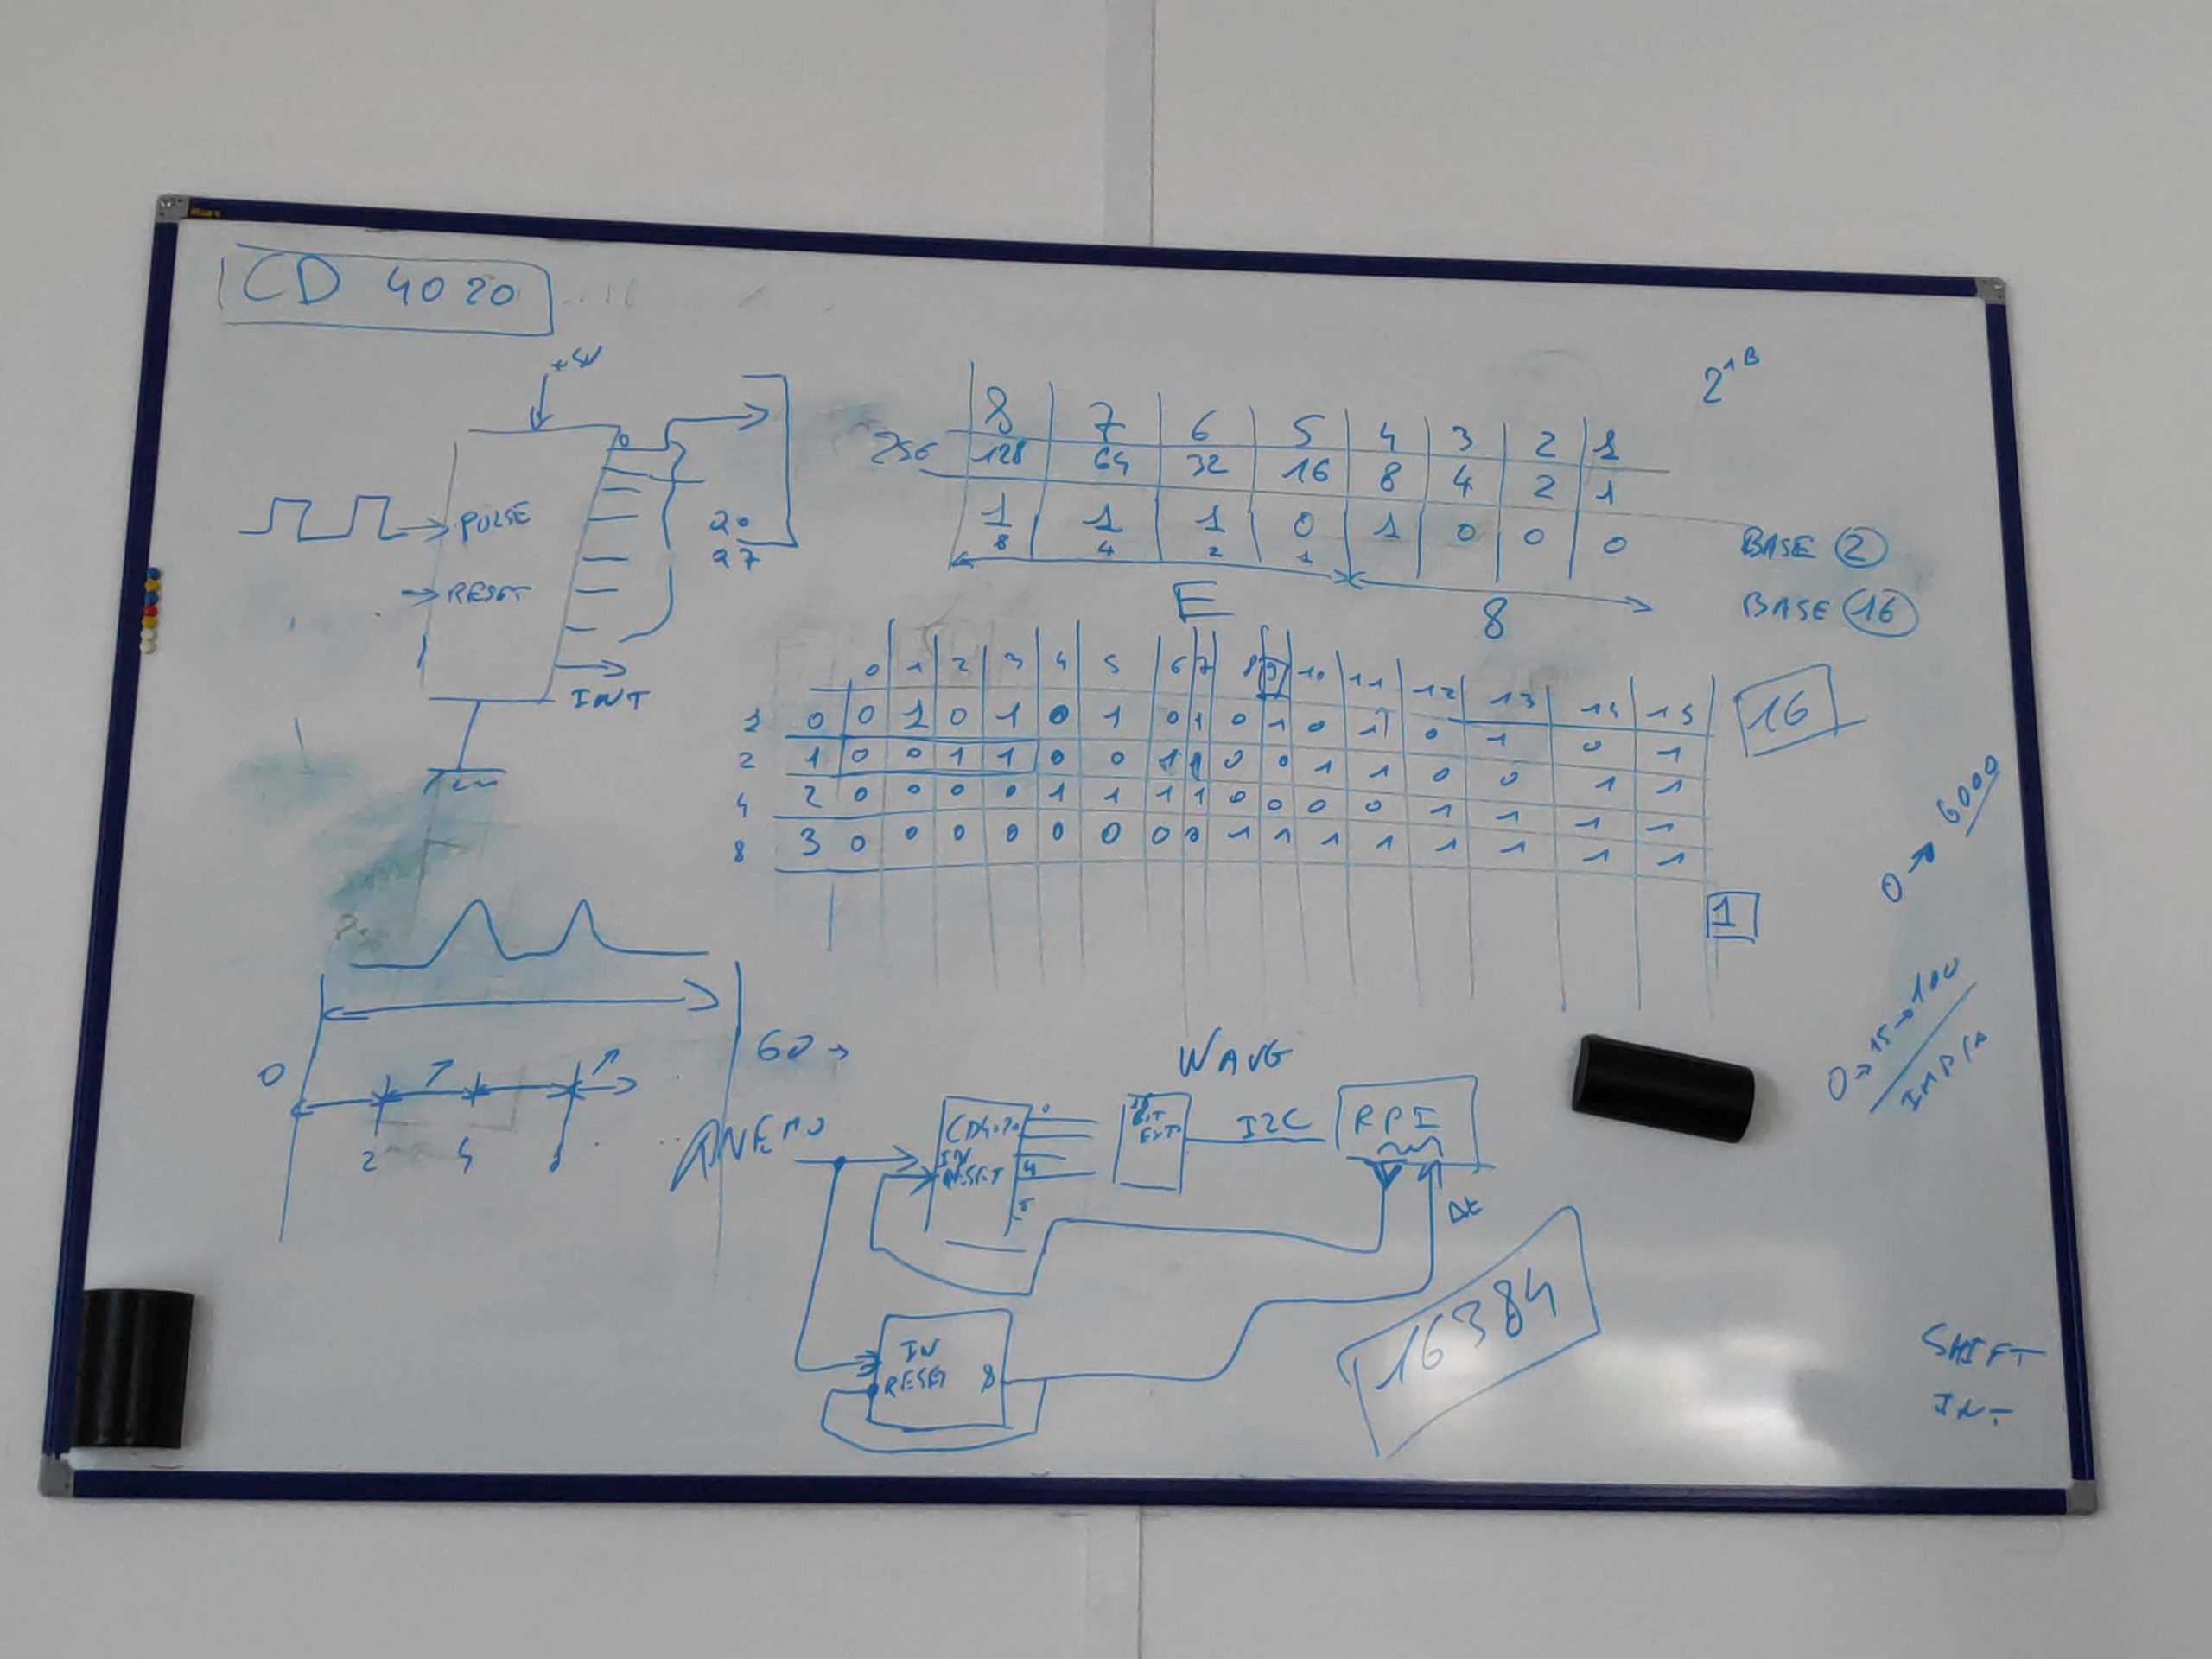 CD 4020
+5V
PULSE
RESET
INT
0
20
27
8 7 6 5 4 3 2 1
256 128 64 32 16 8 4 2 1
1 1 1 0 1 0 0 0 BASE 2
8 4 2 1
E 8 BASE 16
0 1 2 3 4 5 6 7 8 9 10 11 12 13 14 15 16
1 0 0 1 0 1 0 1 0 1 0 1 0 1 0 1 0 1
2 1 0 0 1 1 0 0 1 1 0 0 1 1 0 0 1 1
4 2 0 0 0 0 1 1 1 1 0 0 0 0 1 1 1 1
8 3 0 0 0 0 0 0 0 0 1 1 1 1 1 1 1 1
1
0 → 6000
0 → 15 → 100
0 60 →
2 4
WAVG
ANEMO
CD4020
IN
RESET
0
4
EXT
I2C
RPI
Δt
IN
RESET 8
16384
SHIFT
INT